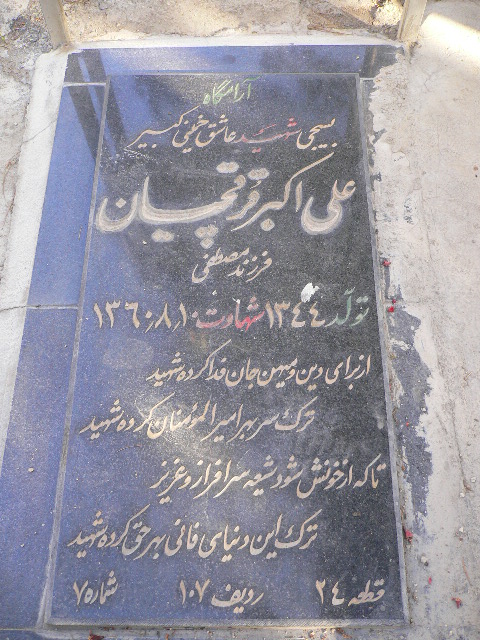 آرامگاه
بسیجی شهید عاشق خمینی کبیر
علی اکبر قرقچیان
فرزند مصطفی
تولد ۱۳۴۴ شهادت ۱۳۶۰،۸،۱۰
از برای دین و میهن جان فدا کرده شهید
ترک سر بهر امیرالمؤمنان کرده شهید
تا که از خونش شود شیعه سرافراز و عزیز
ترک این دنیای فانی بهر حق کرده شهید
قطعه ۲۴ ردیف ۱۰۷ شماره ۷